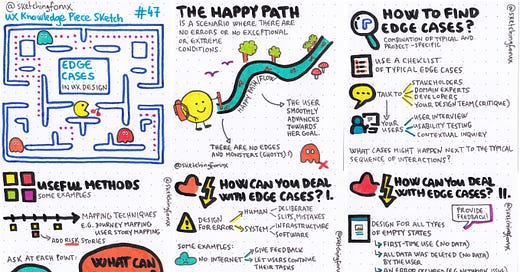 @sketchingforux
UX Knowledge Piece Sketch #47
EDGE
CASES
IN UX DESIGN
THE HAPPY PATH
IS A SCENARIO WHERE THERE ARE
NO ERRORS OR NO EXCEPTIONAL
OR EXTREME
CONDITIONS.
HAPPY PATH/FLOW
THE USER
SMOOTHLY
ADVANCES
TOWARDS
HER GOAL.
THERE ARE NO EDGES
AND MONSTERS (GHOSTS)?
@sketchingforux
@sketchingforux
HOW TO FIND
EDGE CASES?
COMBINATION OF TYPICAL AND
PROJECT-SPECIFIC
USE A CHECKLIST
OF TYPICAL EDGE CASES
TALK TO
STAKEHOLDERS
DOMAIN EXPERTS
DEVELOPERS
YOUR DESIGN TEAM (CRITIQUE)
YOUR
USERS
USER INTERVIEW
USABILITY TESTING
CONTEXTUAL INQUIRY
WHAT CASES MIGHT HAPPEN NEXT TO THE TYPICAL
SEQUENCE OF INTERACTIONS?
USEFUL METHODS
SOME EXAMPLES
MAPPING TECHNIQUES
E.G. JOURNEY MAPPING
USER STORY MAPPING
ADD RISK STORIES
ASK AT EACH POINT:
WHAT CAN
HOW CAN YOU DEAL
WITH EDGE CASES? I.
DESIGN
FOR ERROR
HUMAN
DELIBERATE
SLIPS, MISTAKES
SYSTEM
INFRASTRUCTURE
SOFTWARE
SOME EXAMPLES:
NO INTERNET
GIVE FEEDBACK
LET USERS CONTINUE
THEIR TASKS
@sketchingforux
HOW CAN YOU DEAL
WITH EDGE CASES? II.
PROVIDE
FEEDBACK!
DESIGN FOR ALL TYPES
OF EMPTY STATES
FIRST-TIME USE (NO DATA)
ALL DATA WAS DELETED (NO DATA)
BY THE USER
@sketchingforux